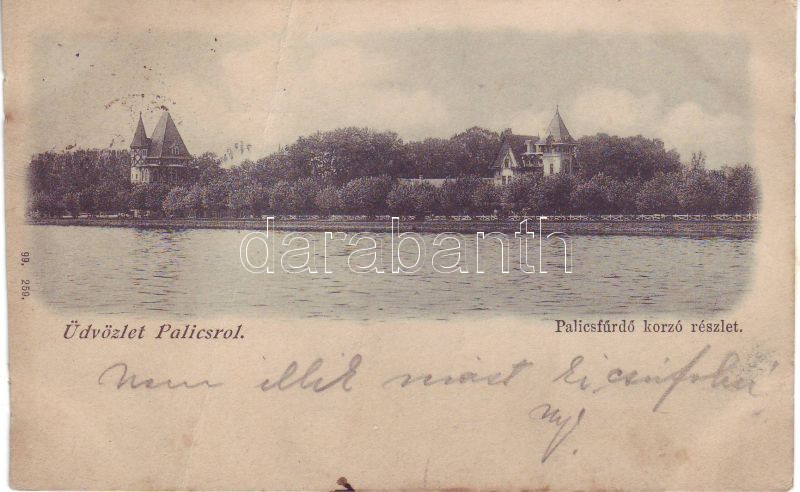 darabanth
99, 259.
Üdvözlet Palicsrol.
Palicsfürdő korzó részlet.
Nem illik mást kicsúfolni